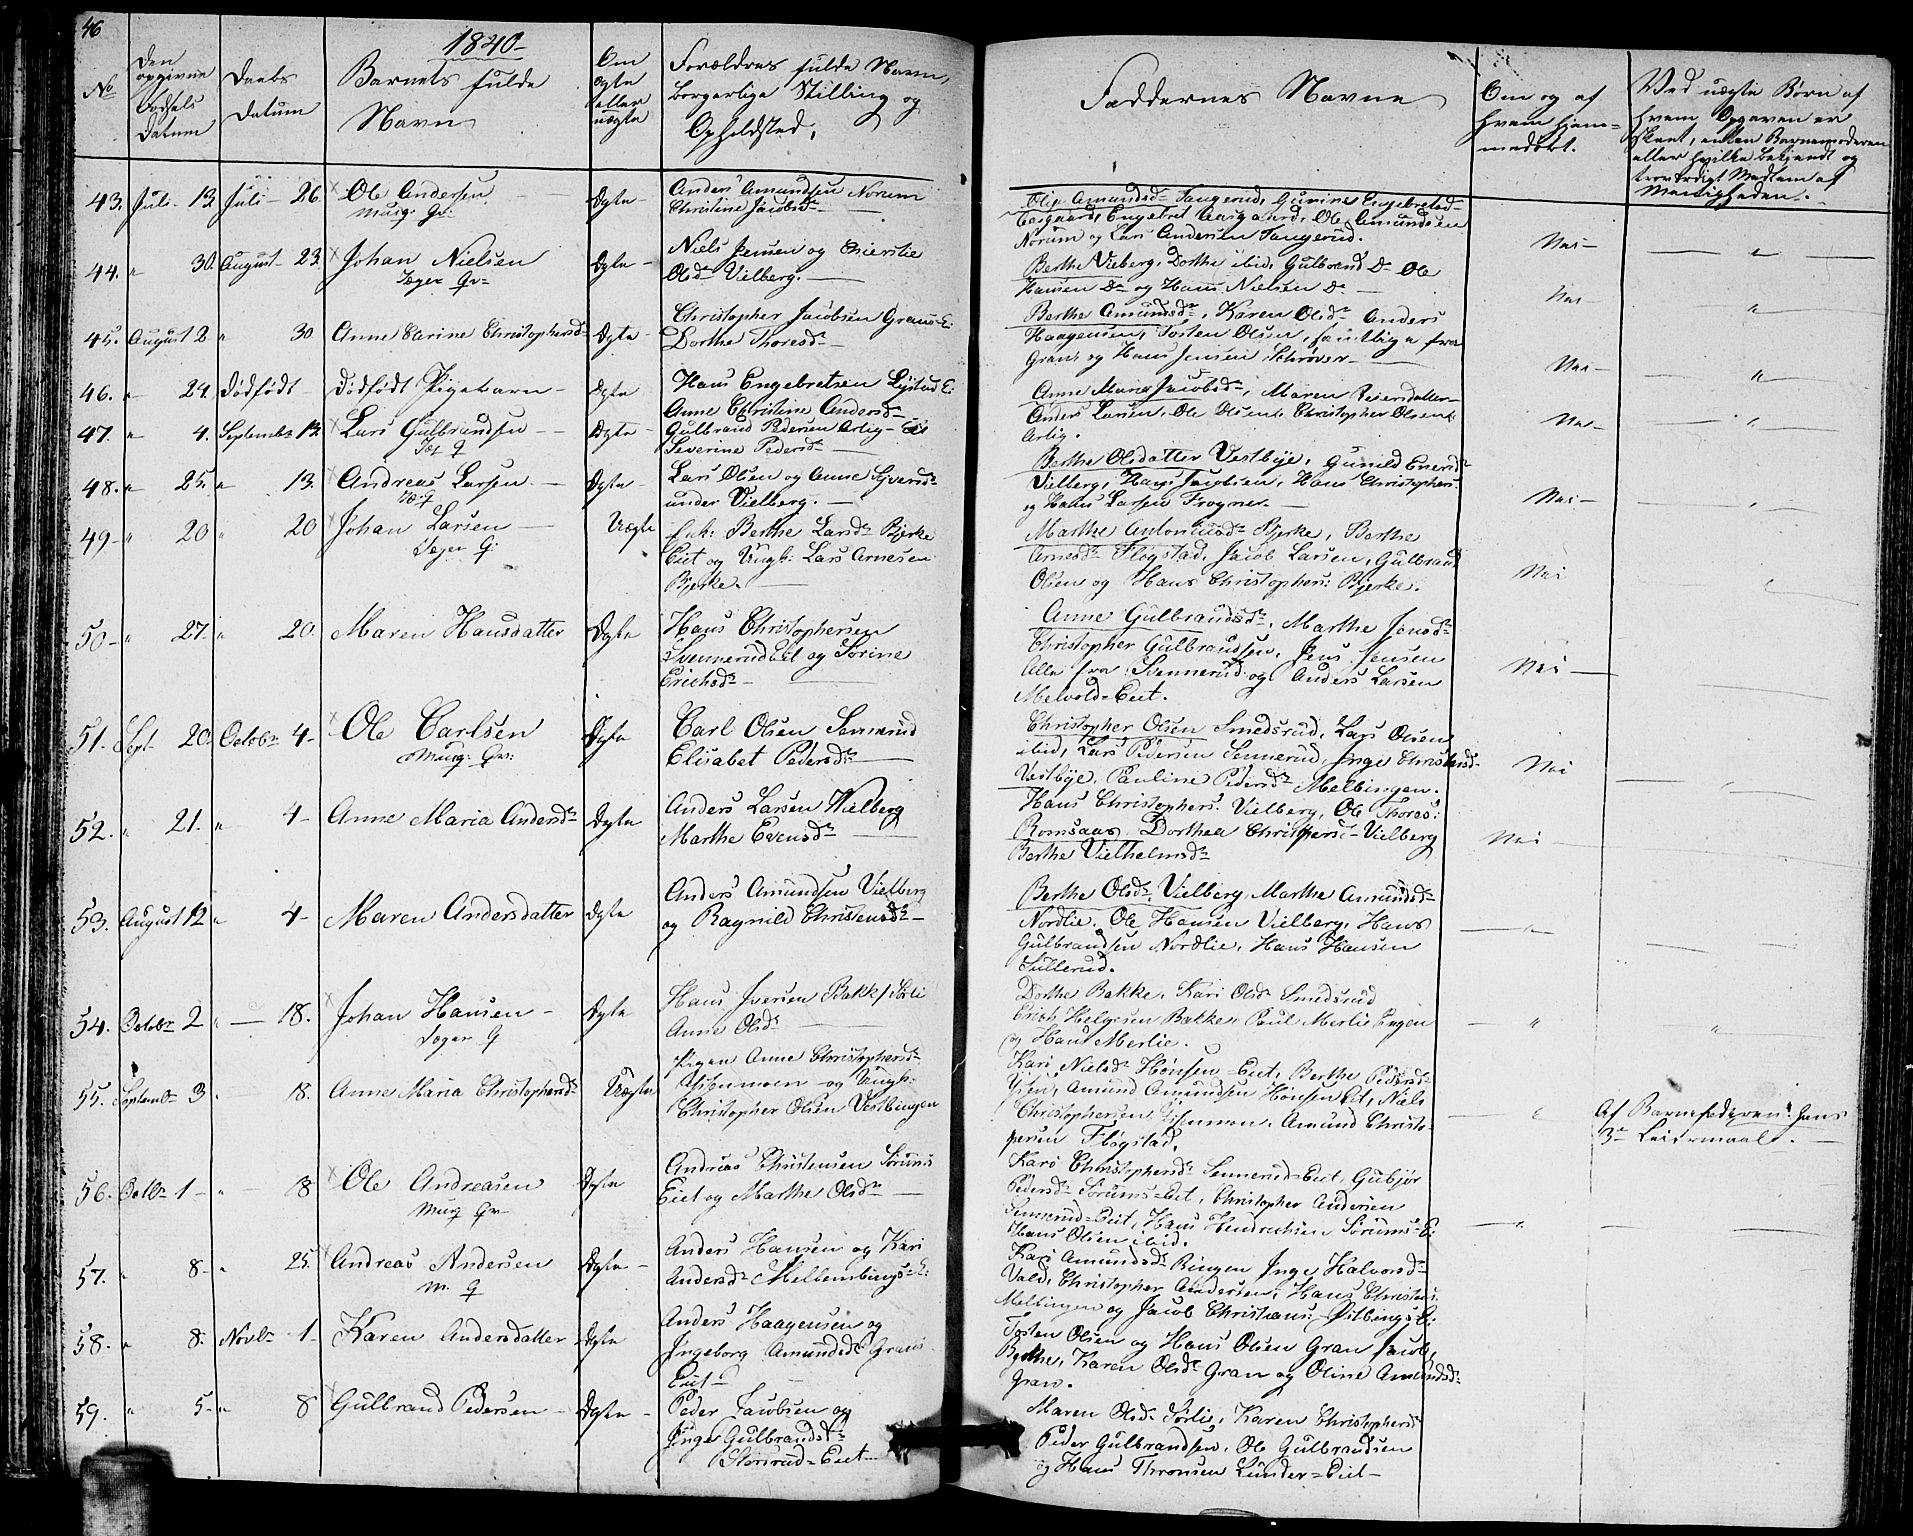 46
1840
No
Den opgivne Fødsels Datum
Daabs Datum
Barnets fulde Navn
Om ægte eller uægte
Forældres fulde Navn, borgerlige Stilling og Opholdsted,
Faddernes Navne
Om og af hvem hjemmedøbt.
Ved uægte Børn af hvem Opgaven er skeet, enten Barnemoderen eller hvilke bekjendt og troværdigt Medlem af Menigheden.
43. Juli 13 Juli 26. Ole Andersen
Ægte
Anders Amundsen Norum
Christine Jacobsd
Engebret Aasgaard, Ole Amundsen
Norum og Lars Andersen Tangerud.
Nei
44. " 30. August 23. Johan Nielsen
Jæger Gr
Ægte
Niels Jensen og Chierstie
Olsd Vielberg.
Berthe Vieberg, Dorthe ibid, Gulbrand Do Ole
Hansen Do og Hans Nielsen Do
Nei "
45. August 2 " 30 Anne Carine Christophersd Ægte
Christopher Jacobsen Grans E:
Dorthe Thoresd
Berthe Amundsd, Karen Olsd Anders
Haagensen, Tosten Olsen, samtlige fra
Gran, og Hans Jensen Schrøver
Nei "
46. " 24. Dødfødt Dødfødt Pigebarn Ægte
Hans Engebretsen Lystad E:
Anne Christine Andersd
47. " 4. Septembr 13. Lars Gulbrandsen
Jæg G
Ægte
Gulbrand Pedersen Arlig
Severine Pedersd
Anne Marg Jacobsd, Maren Reiersdatter
Anders Larsen, Ole Olsen, Christopher Olsen
Arlig.
Nei "
48. " 25. " 13. Andreas Larsen
Ægte
Lars Olsen og Anne Syversd
under Vielberg.
Berthe Olsdatter Vestbye, Gunild Eversd
Vielberg, Hans Jacobsen, Hans Christophers:
og Hans Larsen Frogner.
Nei "
49 " 20 " 20 Johan Larsen
Jæger G:
Uægte
Berthe Larsd Bjerke
Eiet og Ungk: Lars Arnesen
Bjerke.
Marthe Antonisd Bjerke, Berthe
Arnesd Flogstad, Jacob Larsen, Gulbrand
Olsen og Hans Christophers: Bjerke.
Nei
50 " 27. " 20. Maren Hansdatter Ægte
Hans Christophersen
Svennerud Eiet og Sorine
Erichsd
Anne Gulbrandsd, Marthe Jensd
Christopher Gulbrandsen, Jens Jensen
Alle fra Svennerud og Anders Larsen
Melvold Eiet.
Nei
51. Sept 20. Octobr 4 Ole Carlsen
Ægte
Carl Olsen Sennerud
Elisabet Pedersd
Christopher Olsen Smedsrud, Lars Olsen
ibid, Lars Pedersen Sennerud, Inge Christensd
Vestbye, Pauline Pedersd Melbingen.
Nei
52. " 21. " 4 Anne Maria Andersd Ægte
Anders Larsen Vielberg
Marthe Evensd
Hans Christophers. Vielberg, Ole Thores:
Romsaas. Dorthea Christophersd Vielberg
Berthe Vielhelmsd
Nei
53. August 12 " 4 Maren Andersdatter Ægte
Anders Amundsen Vielberg
og Ragnild Christensd
Berthe Olsd Vielberg, Marthe Amundsd
Nordlie, Ole Hansen Vielberg, Hans
Gulbrandsen Nordlie, Hans Hansen
Sullerud.
54. Octobr 2 " 18. Johan Hansen
Jæger G
Ægte
Hans Iversen Bakke
Anne Olsd
Dorthe Bakke, Kari Olsd Smedsrud
Erich Helgesen Bakke, Paul Merlie Engen
og Hans Merlie.
55. Septembr 3 " 18. Anne Maria Christophersd Uægte
Pigen Anne Christophersd
og Ungk:
Christopher Olsen Vestbingen
Kari Nielsd Hønsen Eiet, Berthe Pedersd
Amund Amundsen Hønsen Eiet, Niels
Christophersen Amund Christo-
phersen Flogstad.
Af Barnefaderen hans
3e Leiermaal.
56. Octbr 1 " 18 Ole Andreasen
Ægte
Andreas Christensen Sørums
Eiet og Marthe Olsd
Kari Christophersd Sennerud Eiet, Gubjør
Pedersd Sørums Eiet, Christopher Andersen
Sennerud Eiet, Hans Hendrichsen Sørums E:
Hans Olsen ibid.
57. " 8 " 25. Andreas Andersen
M. G
Ægte
Anders Hansen og Kari
Andersd Mellembings E:
Kari Amundsd Bingen, Inge Halvorsd
Vald, Christopher Andersen, Hans Christens:
Melbingen og Jacob Christians:
58. " 8. Novbr 1 Karen Andersdatter Ægte
Anders Haagensen og
Ingeborg Amundsd Grans
Eiet
Tosten Olsen og Hans Olsen Gran, Jacob
Berthe, Karen Olsd Gran og Oline Amundsd
Gran.
59. " 5 " 8 Gulbrand Pedersen Ægte
Peder Jacobsen og
Inge Gulbrandsd
Eiet
Maren Olsd Sørlie, Karen Christophersd
Peder Gulbrandsen, Ole Gulbrandsen
og Hans Thronsen Lunder Eiet